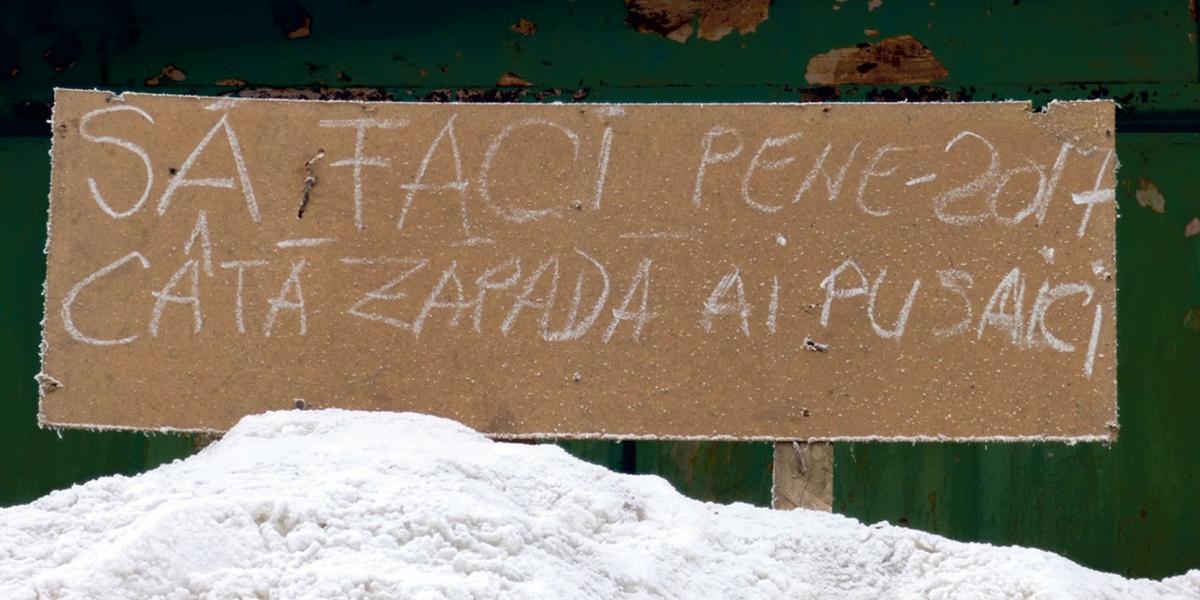 SĂ FACI PENE-2017
CÂTĂ ZAPADA AI PUS AICI